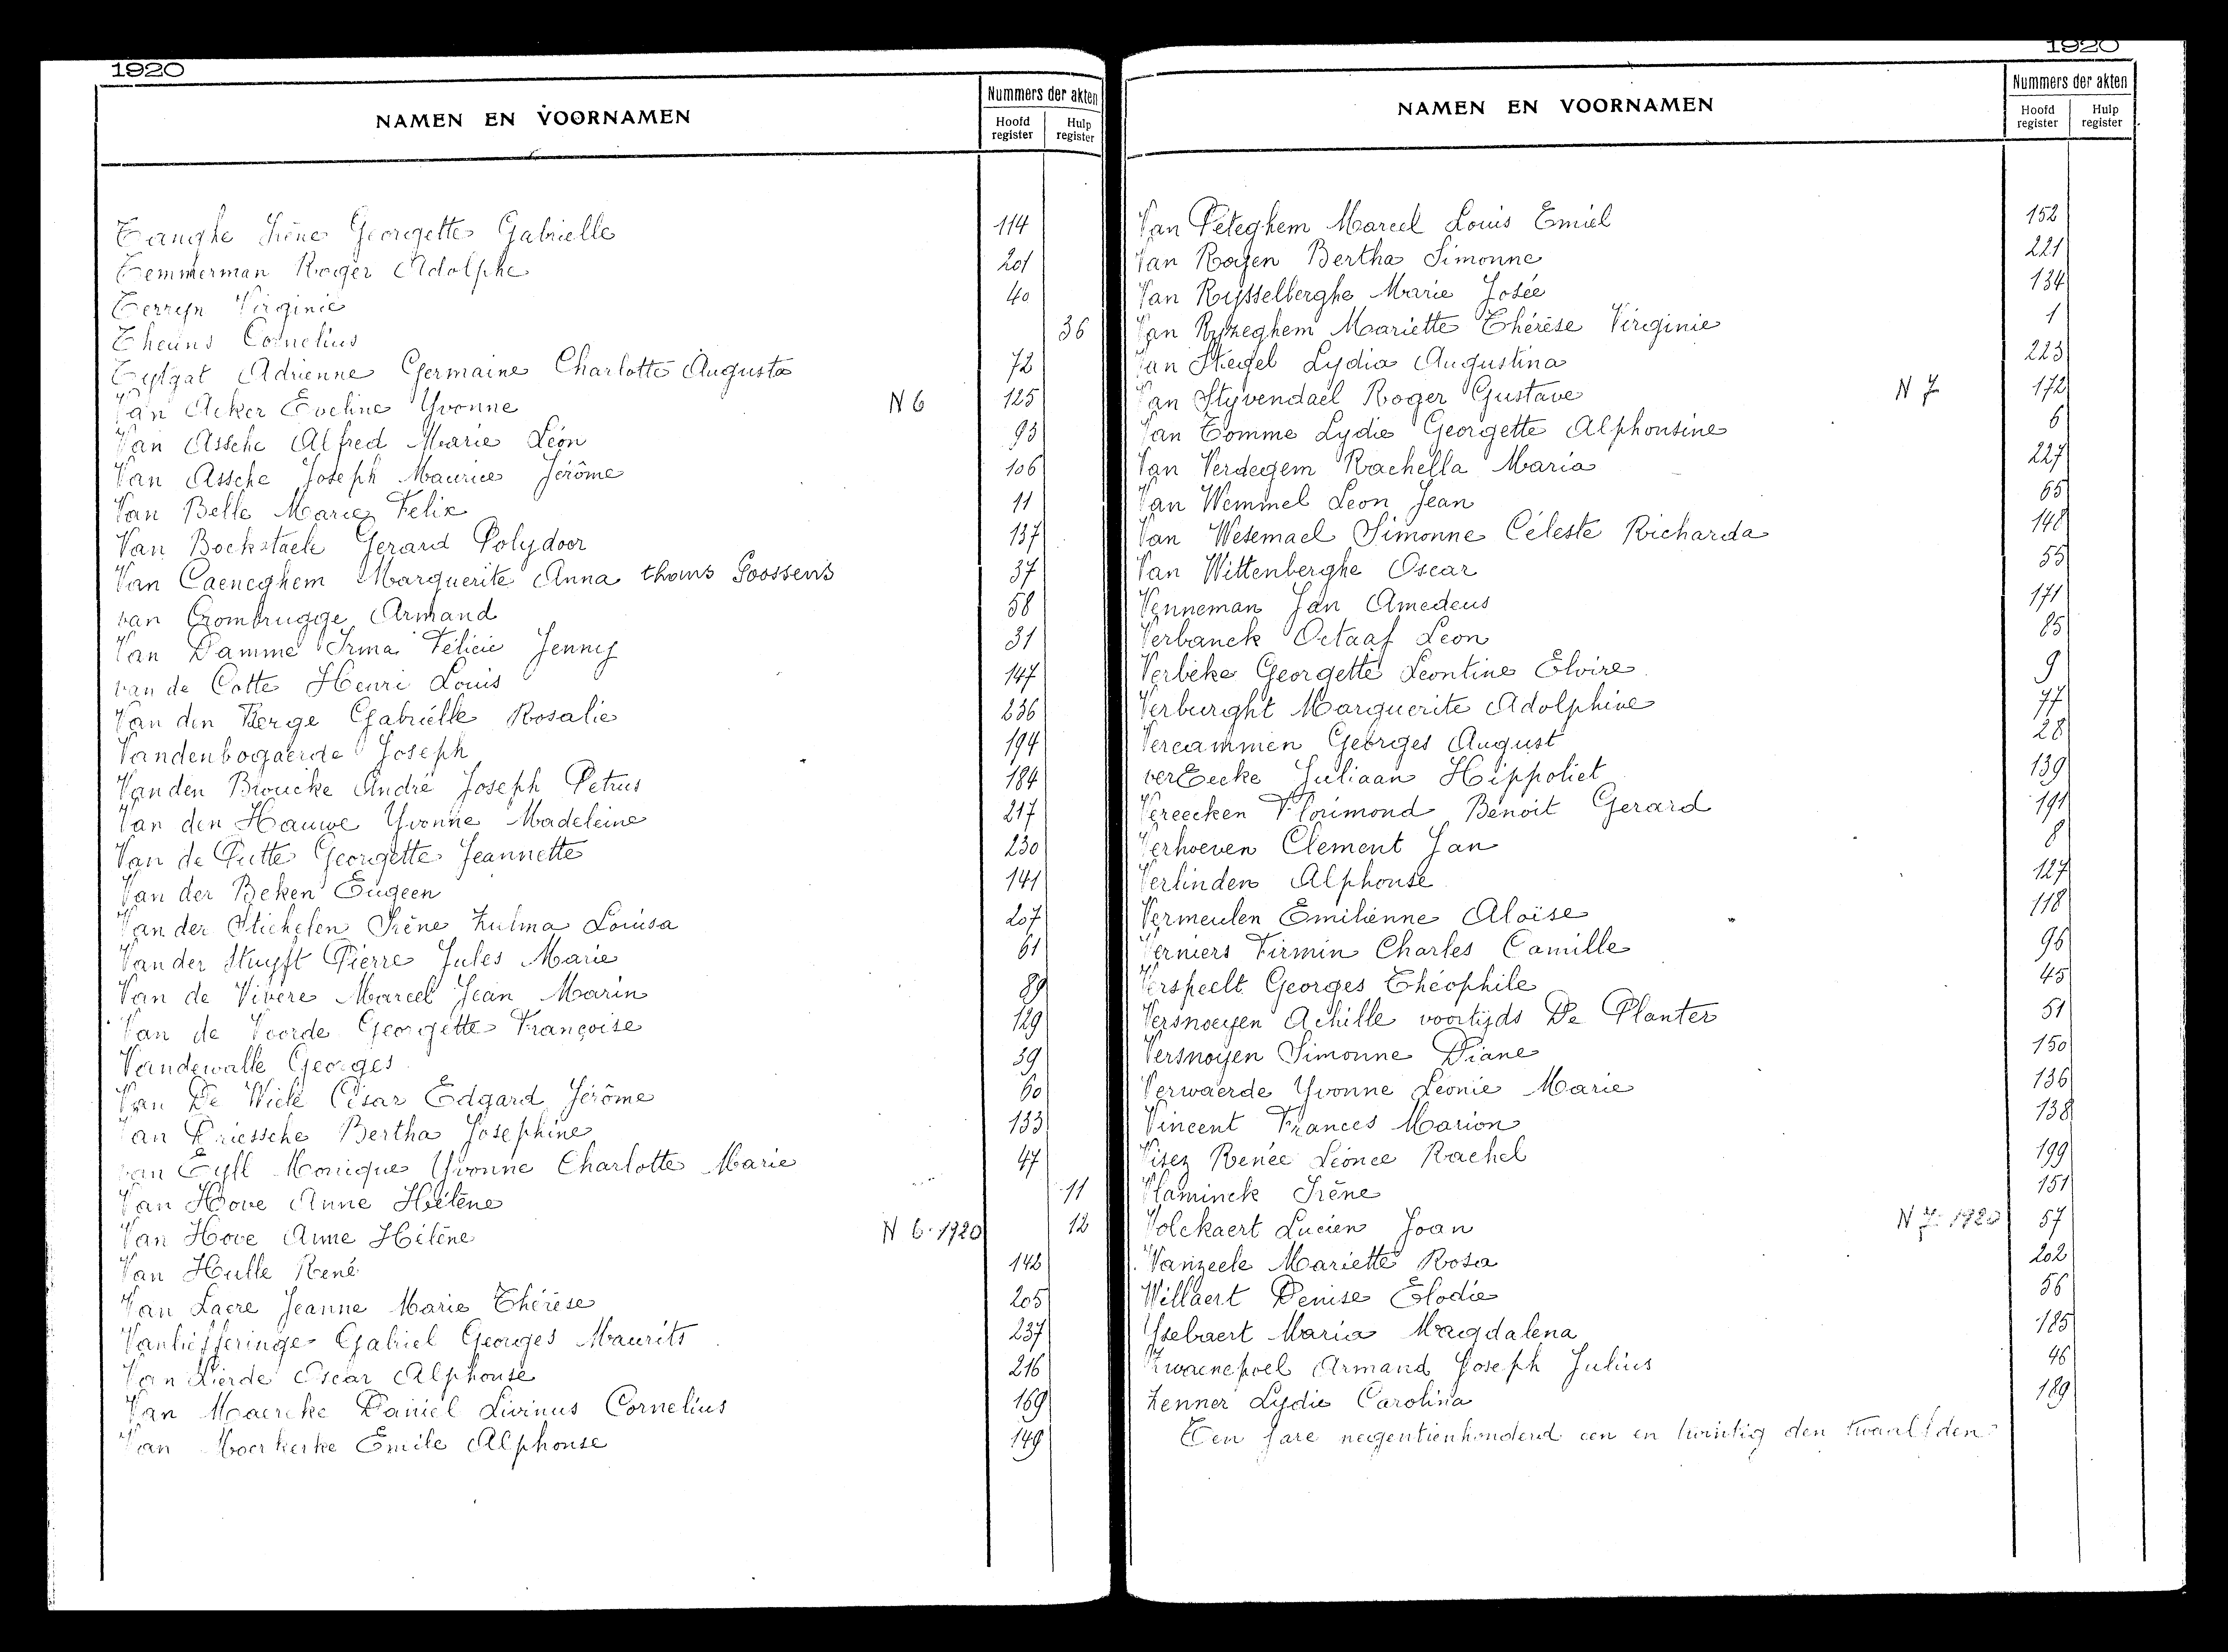 1920
NAMEN EN VOORNAMEN
Nummers der akten
Hoofd register
Hulp register
Tanghe Irène Georgette Gabrielle 114
Temmerman Roger Adolphe 201
Terryn Virginie 40
Theuns Cornelius 36
Tytgat Adrienne Germaine Charlotte Augusta 72
Van Acker Eveline Yvonne N 6 125
Van Assche Alfred Marie Léon 93
Van Assche Joseph Maurice Jérôme 106
Van Belle Marie Felix 11
Van Bockstaele Gerard Polydoor 137
Van Caeneghem Marguerite Anna thans Goossens 37
van Crombrugge Armand 58
Van Damme Irma Félicie Jenny 31
van de Cotte Henri Louis 147
Van den Berge Gabriélle Rosalie 236
Vandenbogaerde Joseph 194
Vanden Broucke André Joseph Petrus 184
Van den Hauwe Yvonne Madeleine 217
Van de Putte Georgette Jeannette 230
Van der Beken Eugeen 141
Van der Stichelen Irène Zulma Louisa 207
Van der Stuyft Pierre Jules Marie 61
Van de Vivere Marcel Jean Marin 89
Van de Voorde Georgette Françoise 129
Vandewalle Georges 39
Van De Wiele César Edgard Jérôme 60
Van Driessche Bertha Josephine 133
van Eyll Monique Yvonne Charlotte Marie 47
Van Hove Anne Hélène 11
Van Hove Anne Hélène N 6-1920 12
Van Hulle René 142
Van Laere Jeanne Marie Thérèse 205
Vanliefferinge Gabriel Georges Maurits 237
Van Lierde Oscar Alphonse 216
Van Maercke Daniël Livinus Cornelius 169
Van Moerkerke Emile Alphonse 149
1920
NAMEN EN VOORNAMEN
Nummers der akten
Hoofd register
Hulp register
Van Peteghem Marcel Louis Emiel 152
Van Royen Bertha Simonne 221
Van Rysselberghe Marie Josée 134
Van Ryzeghem Mariette Thérèse Virginie 1
Van Stegel Lydia Augustina 223
Van Styvendael Roger Gustave N 7 172
Van Tomme Lydie Georgette Alphonsine 6
Van Verdegem Rachella Maria 227
Van Wemmel Leon Jean 65
Van Wesemael Simonne Céleste Richarda 148
Van Wittenberghe Oscar 55
Venneman Jan Amedeus 171
Verbanck Octaaf Leon 85
Verbeke Georgette Leontine Elvire 9
Verburght Marguerite Adolphine 77
Vercammen Georges August 28
verEecke Juliaan Hippoliet 139
Vereecken Florimond Benoit Gerard 191
Verhoeven Clement Jan 8
Verlinden Alphonse 127
Vermeulen Emilienne Aloïse 118
Verniers Firmin Charles Camille 96
Verspeelt Georges Théophile 45
Versnoeyen Achille voortijds De Planter 51
Versnoyen Simonne Diane 150
Verwaerde Yvonne Léonie Marie 136
Vincent Frances Marion 138
Visez Renée Léonce Rachel 199
Vlaminck Irène 151
Volckaert Lucien Joan N 7-1920 57
Wanzeele Mariette Rosa 202
Willaert Denise Elodie 56
Ysebaert Maria Magdalena 185
Zwaenepoel Armand Joseph Julius 46
Zenner Lydie Carolina 189
Ten jare negentienhonderd een en twintig den twaalfden